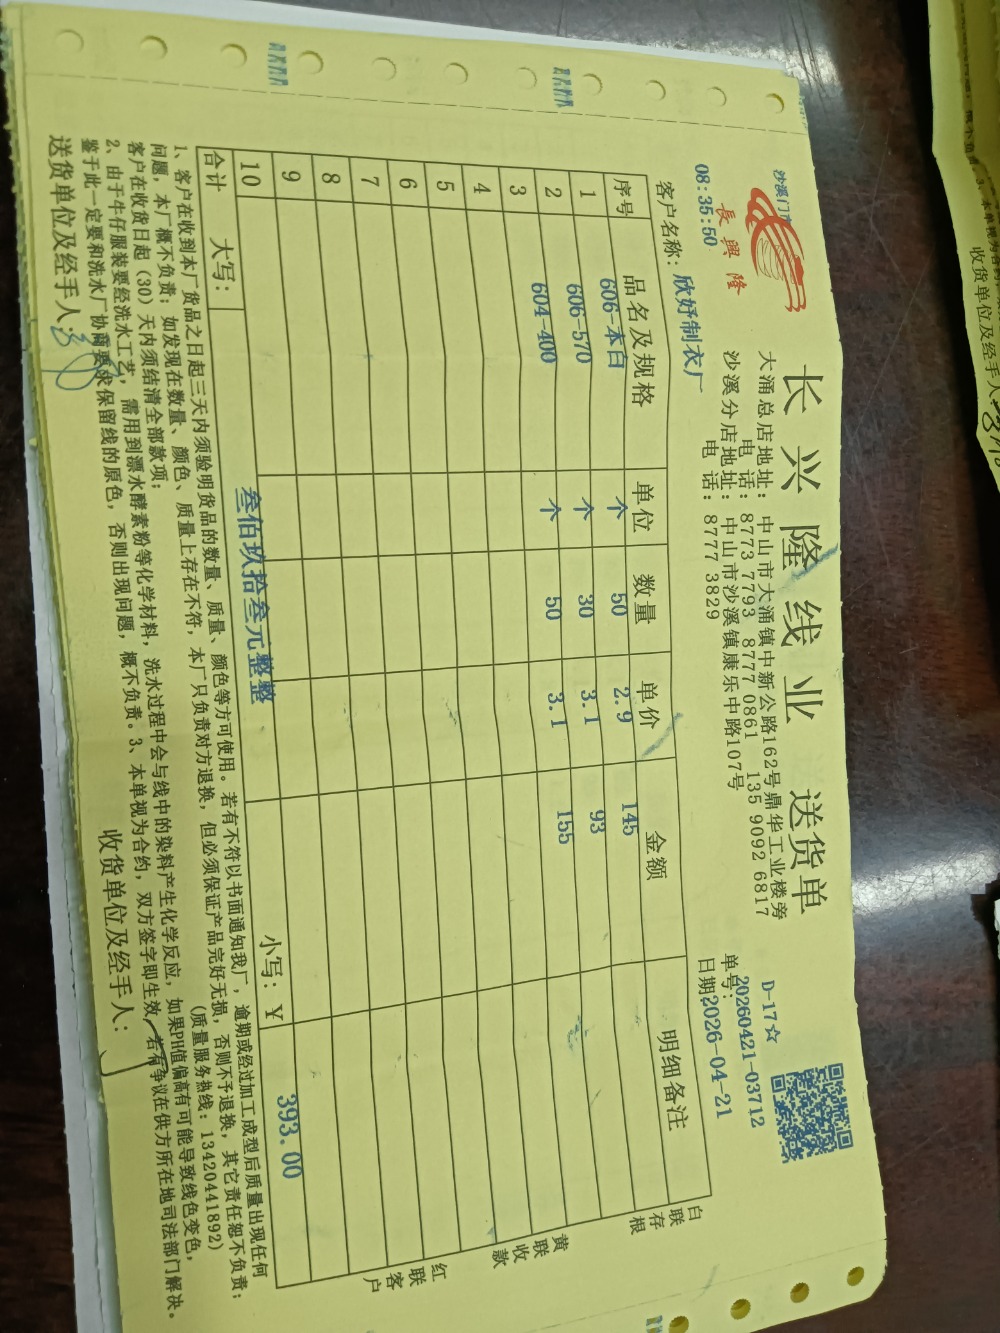 沙溪门市
長興隆
08:35:50
长兴隆线业 送货单
大涌总店地址: 中山市大涌镇中新公路162号鼎华工业楼旁
电话: 8773 7793 8777 0861 135 9092 6817
沙溪分店地址: 中山市沙溪镇康乐中路107号
电话: 8777 3829
D-17☆
单号: 20260421-03712
日期: 2026-04-21
客户名称: 欣妤制衣厂
序号 品名及规格 单位 数量 单价 金额 明细备注
1 606-本白 个 50 2.9 145
2 606-570 个 30 3.1 93
3 604-400 个 50 3.1 155
4
5
6
7
8
9
10
合计 大写: 叁佰玖拾叁元整整 小写: Y 393.00
白联存根
黄联收款
红联客户
1、客户在收到本厂货品之日起三天内须验明货品的数量、质量、颜色等方可使用。若有不符以书面通知我厂, 逾期或经过加工成型后质量出现任何
问题, 本厂概不负责; 如发现在数量、颜色、质量上存在不符, 本厂只负责对方退换, 但必须保证产品完好无损, 否则不予退换, 其它责任恕不负责;
客户在收货日起 (30) 天内须结清全部款项; (质量服务热线: 13420441892)
2、由于牛仔服装要经洗水工艺, 需用到漂水酵素粉等化学材料, 洗水过程中会与线中的染料产生化学反应, 如果PH值偏高有可能导致线色变色,
鉴于此一定要和洗水厂协商要求保留线的原色, 否则出现问题, 概不负责。3、本单视为合约, 双方签字即生效, 若有争议在供方所在地司法部门解决。
送货单位及经手人:
收货单位及经手人:
收货单位及经手人